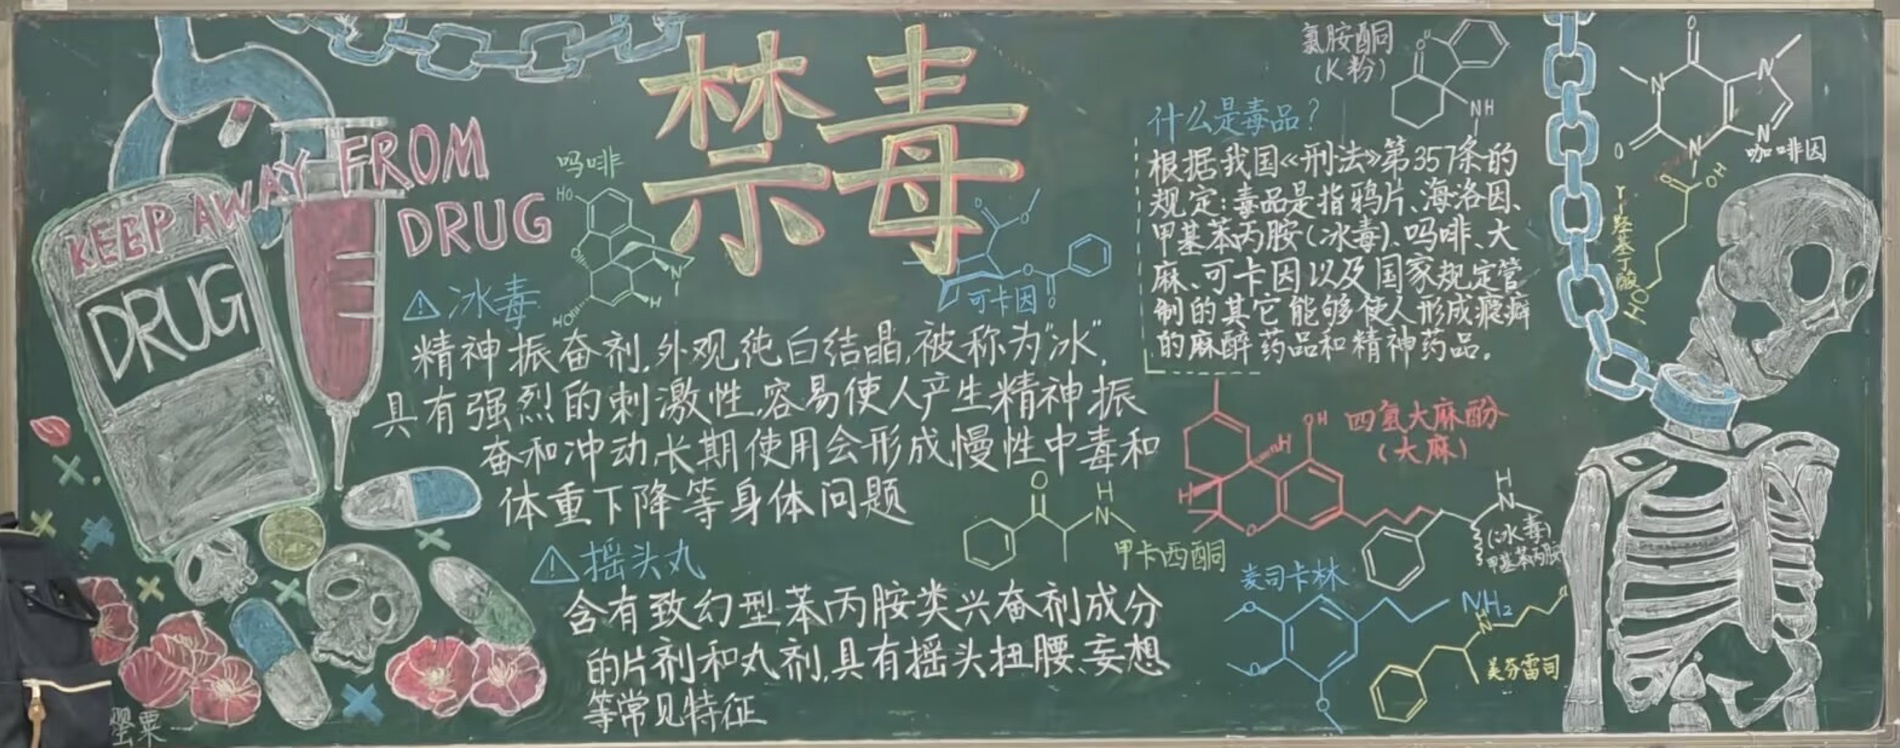 禁毒
KEEP AWAY FROM
DRUG
DRUG
吗啡
HO
O
HO
H
N
可卡因
O
O
O
O
⚠冰毒
精神振奋剂,外观纯白结晶,被称为"冰",
具有强烈的刺激性.容易使人产生精神振
奋和冲动长期使用会形成慢性中毒和
体重下降等身体问题
⚠摇头丸
含有致幻型苯丙胺类兴奋剂成分
的片剂和丸剂,具有摇头扭腰、妄想
等常见特征
罂粟
氯胺酮
(K粉)
O
NH
什么是毒品?
根据我国《刑法》第357条的
规定:毒品是指鸦片、海洛因、
甲基苯丙胺(冰毒)、吗啡、大
麻、可卡因以及国家规定管
制的其它能够使人形成瘾癖
的麻醉药品和精神药品.
O
N
N
O
N
N
咖啡因
O
OH
γ-羟基丁酸
HO
四氢大麻酚
(大麻)
OH
H
H
O
O
H
N
甲卡西酮
H
N
(冰毒)
甲基苯丙胺
麦司卡林
O
O
O
NH₂
N
美芬雷司